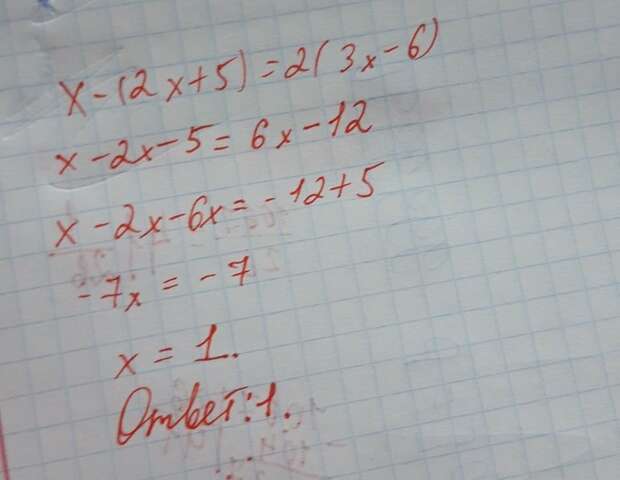 x-(2x+5)=2(3x-6)
x-2x-5=6x-12
x-2x-6x=-12+5
-7x=-7
x=1.
Ответ:1.